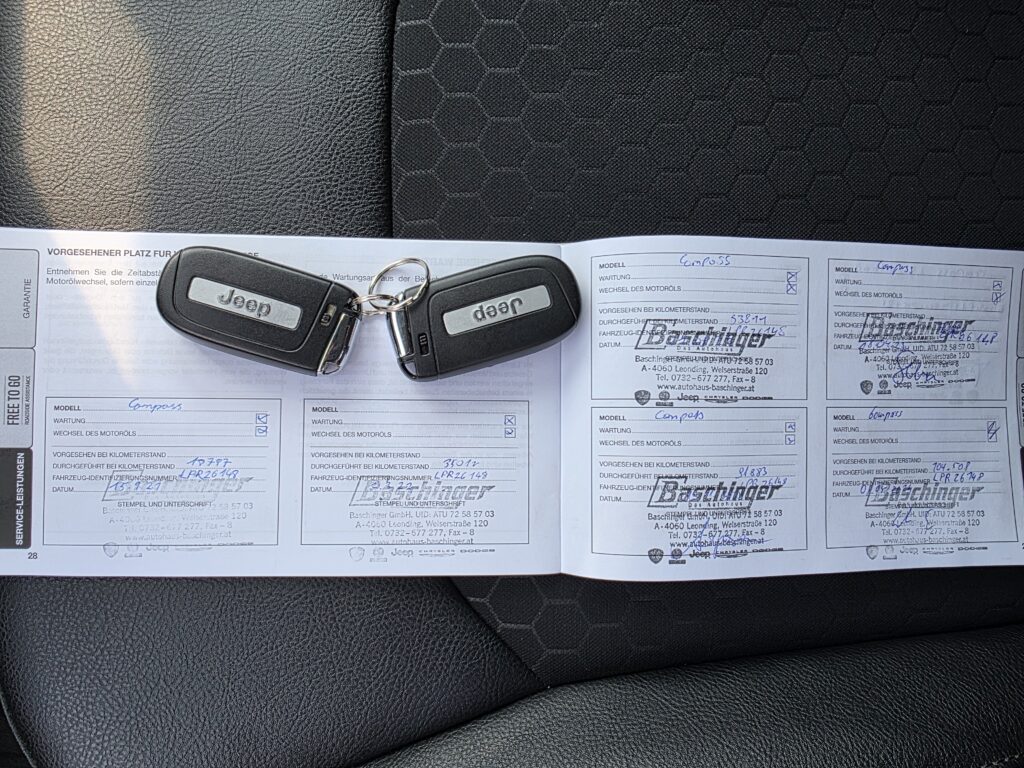 GARANTIE
FREE TO GO
ROADSIDE ASSISTANCE
SERVICE-LEISTUNGEN
28
VORGESEHENER PLATZ FÜR
Entnehmen Sie die Zeitabstä
Motorölwechsel, sofern einzel
Wartungsplan aus der Be
Jeep
Jeep
MODELL Compass
WARTUNG
WECHSEL DES MOTORÖLS
VORGESEHEN BEI KILOMETERSTAND
DURCHGEFÜHRT BEI KILOMETERSTAND
FAHRZEUG-IDENTIFIZIERUNGSNUMMER LPR26148
DATUM
Baschinger
STEMPEL UND UNTERSCHRIFT
Baschinger GmbH, UID: ATU 72 58 57 03
A-4060 Leonding, Welserstraße 120
Tel. 0732-677 277, Fax - 8
www.autohaus-baschinger.at
Jeep CHRYSLER DODGE
MODELL
WARTUNG
WECHSEL DES MOTORÖLS
VORGESEHEN BEI KILOMETERSTAND
DURCHGEFÜHRT BEI KILOMETERSTAND 35012
FAHRZEUG-IDENTIFIZIERUNGSNUMMER LPR26148
DATUM
Baschinger
Das Autohaus
STEMPEL UND UNTERSCHRIFT
Baschinger GmbH, UID: ATU 72 58 57 03
A-4060 Leonding, Welserstraße 120
Tel. 0732-677 277, Fax - 8
www.autohaus-baschinger.at
Jeep CHRYSLER DODGE
MODELL Compass
WARTUNG
WECHSEL DES MOTORÖLS
VORGESEHEN BEI KILOMETERSTAND
DURCHGEFÜHRT BEI KILOMETERSTAND 53811
FAHRZEUG-IDENTIFIZIERUNGSNUMMER
DATUM
Baschinger
Das Autohaus
STEMPEL UND UNTERSCHRIFT
Baschinger GmbH, UID: ATU 72 58 57 03
A-4060 Leonding, Welserstraße 120
Tel. 0732-677 277, Fax - 8
www.autohaus-baschinger.at
Jeep CHRYSLER DODGE
MODELL Compass
WARTUNG
WECHSEL DES MOTORÖLS
VORGESEHEN BEI KILOMETERSTAND
Baschinger
Das Autohaus
Baschinger GmbH, UID: ATU 72 58 57 03
A-4060 Leonding, Welserstraße 120
Tel. 0732-677 277, Fax - 8
www.autohaus-baschinger.at
Jeep CHRYSLER DODGE
MODELL Compass
WARTUNG
WECHSEL DES MOTORÖLS
VORGESEHEN BEI KILOMETERSTAND
DURCHGEFÜHRT BEI KILOMETERSTAND
FAHRZEUG-IDENTIFIZIERUNGSNUMMER
DATUM
Baschinger
Das Autohaus
STEMPEL UND UNTERSCHRIFT
Baschinger GmbH, UID: ATU 72 58 57 03
A-4060 Leonding, Welserstraße 120
Tel. 0732-677 277, Fax - 8
www.autohaus-baschinger.at
Jeep CHRYSLER DODGE
MODELL Compass
WARTUNG
WECHSEL DES MOTORÖLS
VORGESEHEN BEI KILOMETERSTAND
DURCHGEFÜHRT BEI KILOMETERSTAND 104.508
FAHRZEUG-IDENTIFIZIERUNGSNUMMER LPR26148
DATUM
Baschinger
Das Autohaus
Baschinger GmbH, UID: ATU 72 58 57 03
A-4060 Leonding, Welserstraße 120
Tel. 0732-677 277, Fax - 8
www.autohaus-baschinger.at
Jeep CHRYSLER DODGE